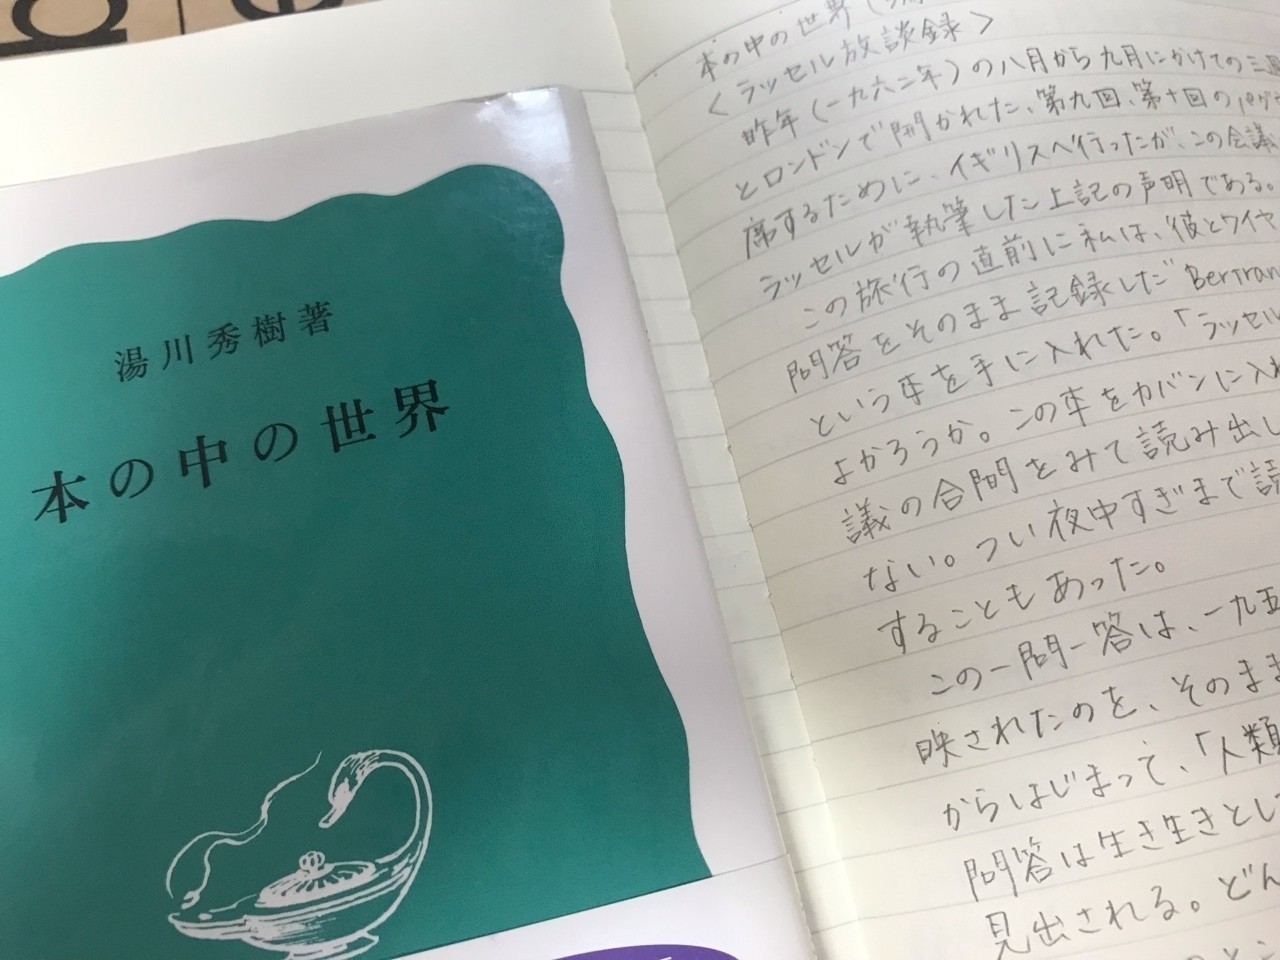 湯川秀樹著
本の中の世界
本の中の世界(
<ラッセル放談録>
昨年(一九六二年)の八月から九月にかけての三週
とロンドンで開かれた、第九回、第十回のパグ
席するために、イギリスへ行ったが、この会議
ラッセルが執筆した上記の声明である。
この旅行の直前に私は、彼とワイヤ
問答をそのまま記録した"Bertran
という本を手に入れた。「ラッセル
よかろうか。この本をカバンに入れ
議の合間をみて読み出し
ない。つい夜中すぎまで読
することもあった。
この一問一答は、一九五
映されたのを、そのまま
からはじまって、「人類
問答は生き生きとし
見出される。どん